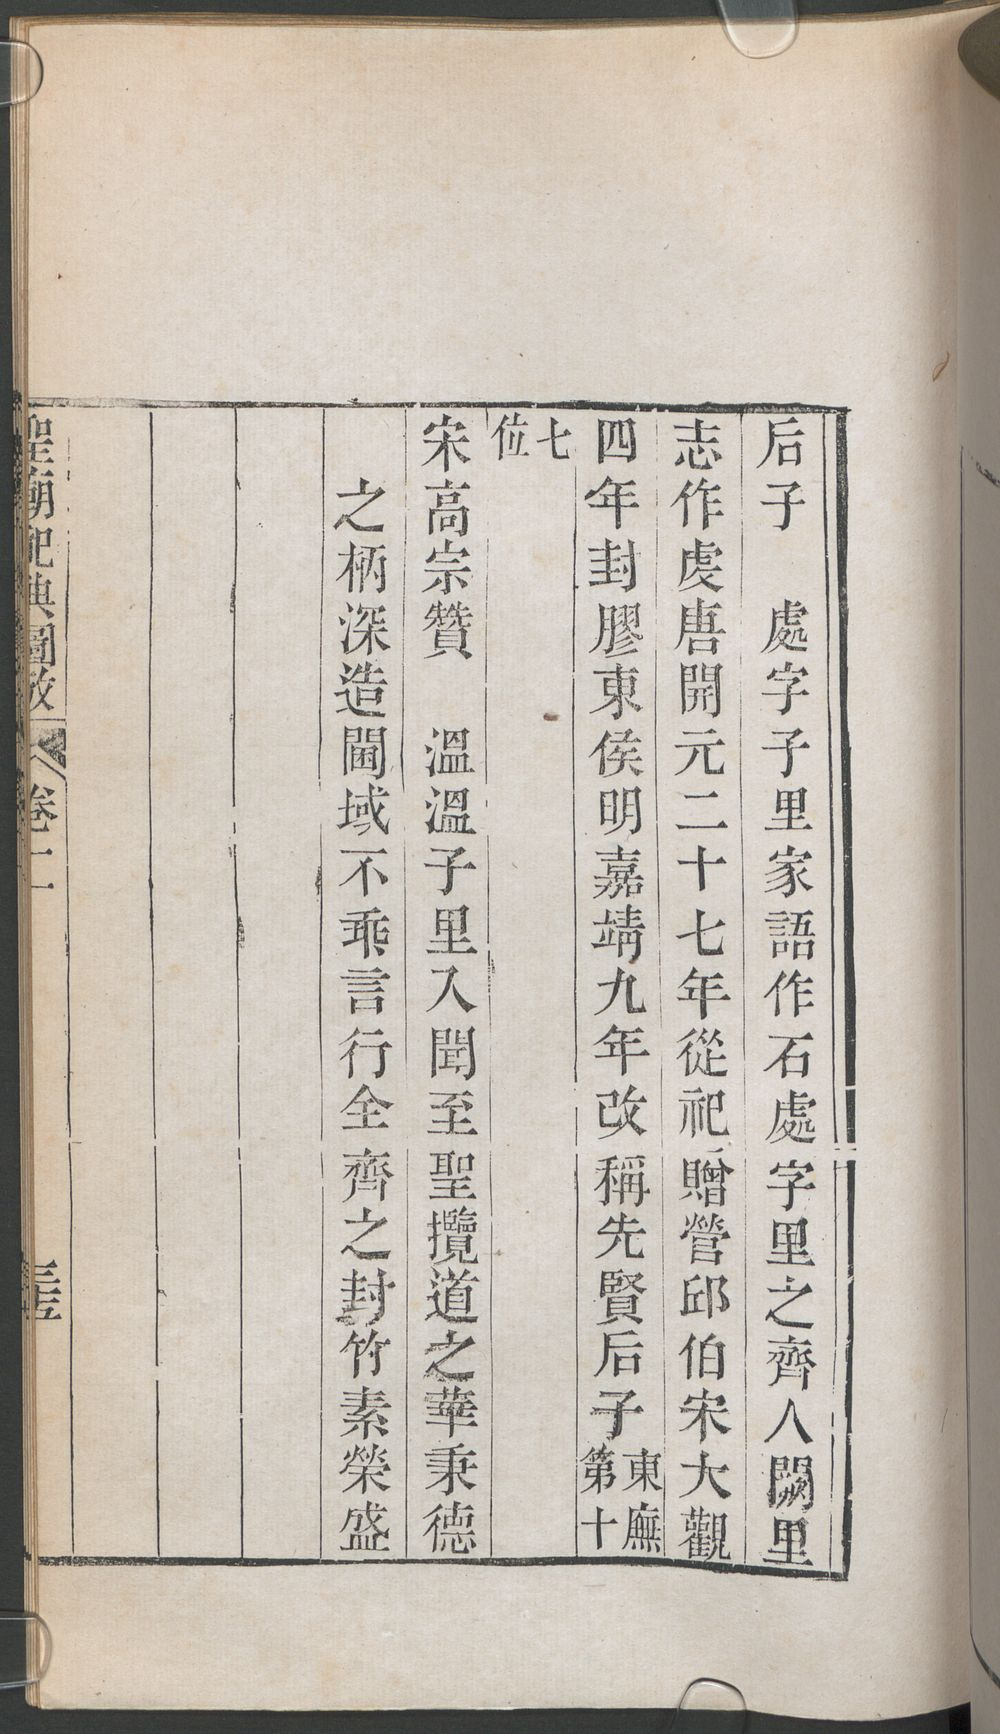 后子　處字子里家語作石處字里之齊人闕里
志作處唐開元二十七年從祀贈營邱伯宋大觀
四年封膠東侯明嘉靖九年改稱先賢后子東廡第十
七位
宋高宗贊　溫溫子里入聞至聖攬道之華秉德
之柄深造閫域不乖言行全齊之封竹素榮盛
聖廟祀典圖攷
卷二